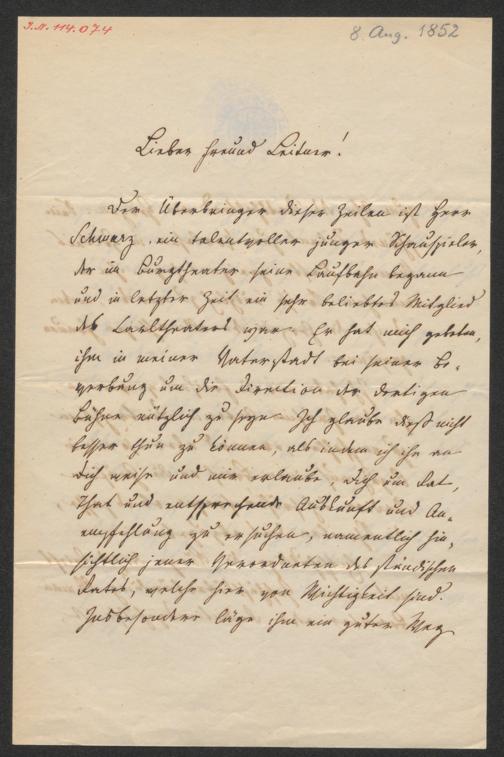 J.N. 114.074
8 Aug. 1852
Lieber Freund Leitner!
Der Überbringer dieser Zeilen ist Herr
Schwarz, ein talentvoller junger Schauspieler,
der im Burgtheater seine Laufbahn begann
und in letzter Zeit ein sehr beliebtes Mitglied
des Carltheaters war. Er hat mich gebeten,
ihm in meiner Vaterstadt bei seiner Be-
werbung um die Direction der dortigen
Bühne nützlich zu seyn. Ich glaube dieß nicht
besser thun zu können, als indem ich ihn an
Dich weise und mir erlaube, Dich um Rat,
That und entsprechende Auskunft und An-
empfehlung zu ersuchen, namentlich hin-
sichtlich jener Verordneten des ständischen
Rates, welche hier von Wichtigkeit sind.
Insbesondere läge ihm ein guter Weg